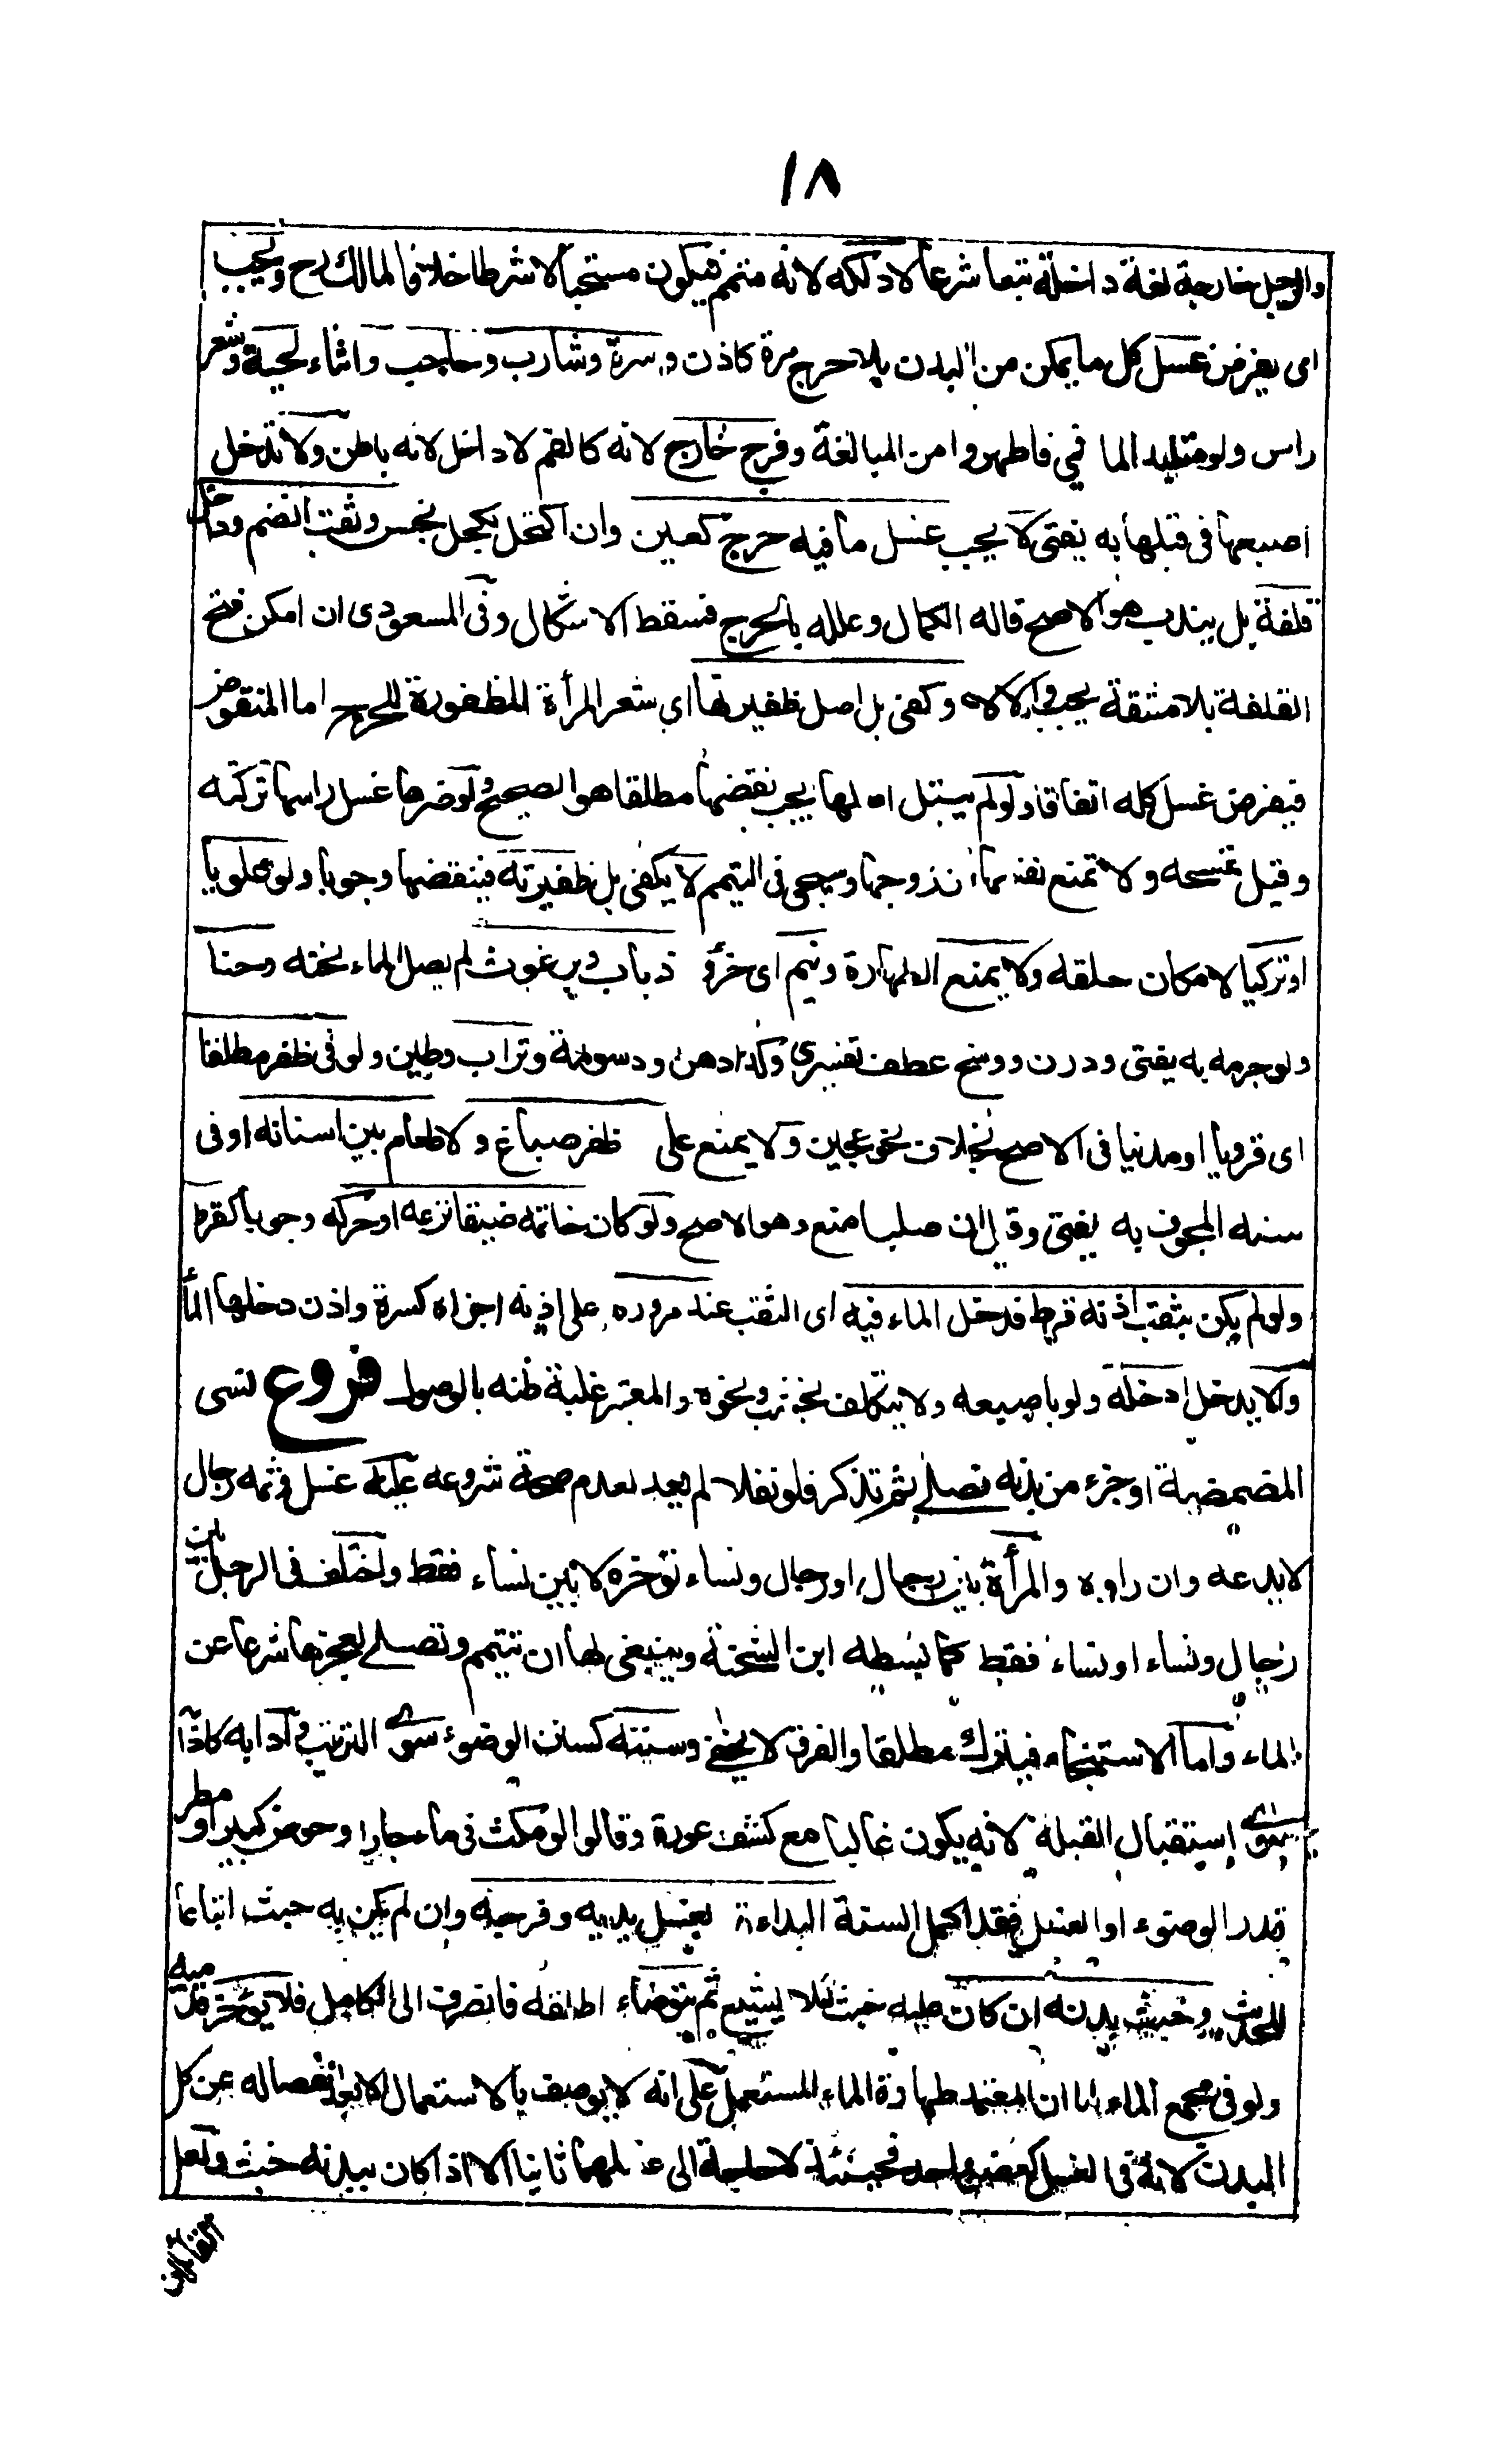 ١٨
والرجل خارجة لغة داخلة تبعا شرعا لا دلكه لانه متمم فيكون مستحبا لا شرطا خلافا لمالك رح ويجب
اى يفرض غسل كل ما يمكن من البدن بلا حرج مرة كاذن و سرة وشارب وحاجب واثناء لحية وشعر
راس ولو متلبد الما فى فاطهروا من المبالغة وفرج خارج لانه كالفم لا داخل لانه باطن ولا تدخل
اصبعها فى قبلها به يفتى لا يجب غسل ما فيه حرج كعين وان اكتحل بكحل نجس وثقب انضم وداخل
قلفة بل يندب هو الاصح قاله الكمال وعلله بالحرج فسقط الاشكال وفى المسعودى ان امكن فسخ
القلفة بلا مشقة يجب والا لا وكفى بل اصل ظفيرتها اى شعر المرأة المظفورة للحرج اما المنقوض
فيفرض غسل كله اتفاقا ولو لم يبتل اصلها يجب نقضها مطلقا هو الصحيح ولو ضرها غسل راسها تركته
وقيل تمسحه ولا تمنع نفسها عن زوجها وسيجئ فى التيمم لا يكفى بل ظفيرته فينقضها وجوبا ولو علويا
او تركيا لامكان حلقه ولا يمنع الطهارة ونيم اى خرؤ ذباب وبرغوث لم يصل الماء تحته وحنا
ولو جرمه به يفتى ودرن ووسخ عطف تفسيرى وكذا دهن ودسومة وتراب وطين ولو فى ظفر مطلقا
اى قرويا او مدنيا فى الاصح بخلاف نحو عجين ولا يمنع على ظفر صباغ ولا طعام بين اسنانه او فى
سنه المجوف به يفتى وقيل ان صلبا منع وهو الاصح ولو كان خاتمه ضيقا نزعه او حركه وجوبا كقرط
ولو لم يكن بثقب اذنه قرط فدخل الماء فيه اى الثقب عند مروره على اذنه اجزاه كسرة واذن دخلها الما
والا يدخل ادخله ولو باصبعه ولا يتكلف بخشب ونحوه والمعتبر غلبة ظنه بالوصول فروع نسى
المضمضة او جزء من بدنه فصلى ثم تذكر فلو نفلا لم يعد لعدم صحة شروعه عليه غسل وثمه رجال
لا يدعه وان راوه والمرأة بين رجال او رجال ونساء تؤخره لا بين نساء فقط واختلف فى الرجل بين
رجال ونساء او نساء فقط كما بسطه ابن الشحنة وينبغى لها ان تتيمم وتصلى لعجزها شرعا عن
الماء واما الاستنجاء فيترك مطلقا والفرق لا يخفى وسننه كسنن الوضوء سوى الترتيب وآدابه كاذآ
به سوى استقبال القبلة لانه يكون غالبا مع كشف عورة وقالوا لو مكث فى ماء جار او حوض كبير او مطر
قدر الوضوء او الغسل فقد اكمل السنة البداءة بغسل يديه وفرجه وان لم يكن به خبث اتباعا
للحديث وخبث بدنه ان كان عليه خبث لئلا يشيع ثم يتوضاء اطلقه فانصرف الى الكامل فلا يؤخر قدميه
ولو فى مجمع الماء لما ان المعتمد طهارة الماء المستعمل على انه لا يوصف بالاستعمال الا بعد انفصاله عن كل
البدن لانه فى الغسل كعضو واحد فحينئذ لا حاجة الى غسلهما ثانيا الا اذا كان ببدنه خبث ولعل
القائلين